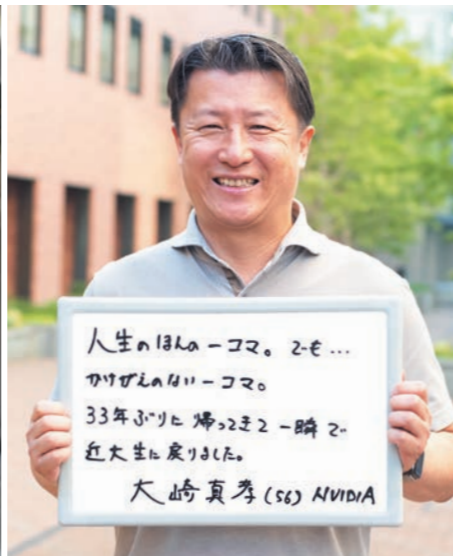 人生のほんの一コマ。でも…
かけがえのない一コマ。
33年ぶりに帰ってきて一瞬で
近大生に戻りました。
大崎真孝(56) NVIDIA